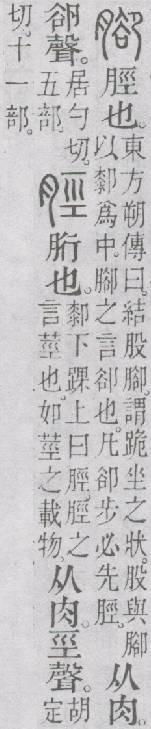 腳脛也。東方朔傳曰。結股腳。謂跪坐之狀。股與腳以厀爲中。腳之言卻也。凡卻步必先脛。从肉。
卻聲。居勺切。五部。脛胻也。厀下踝上曰脛。脛之言莖也。如莖之載物。从肉。巠聲。胡定
切。十一部。